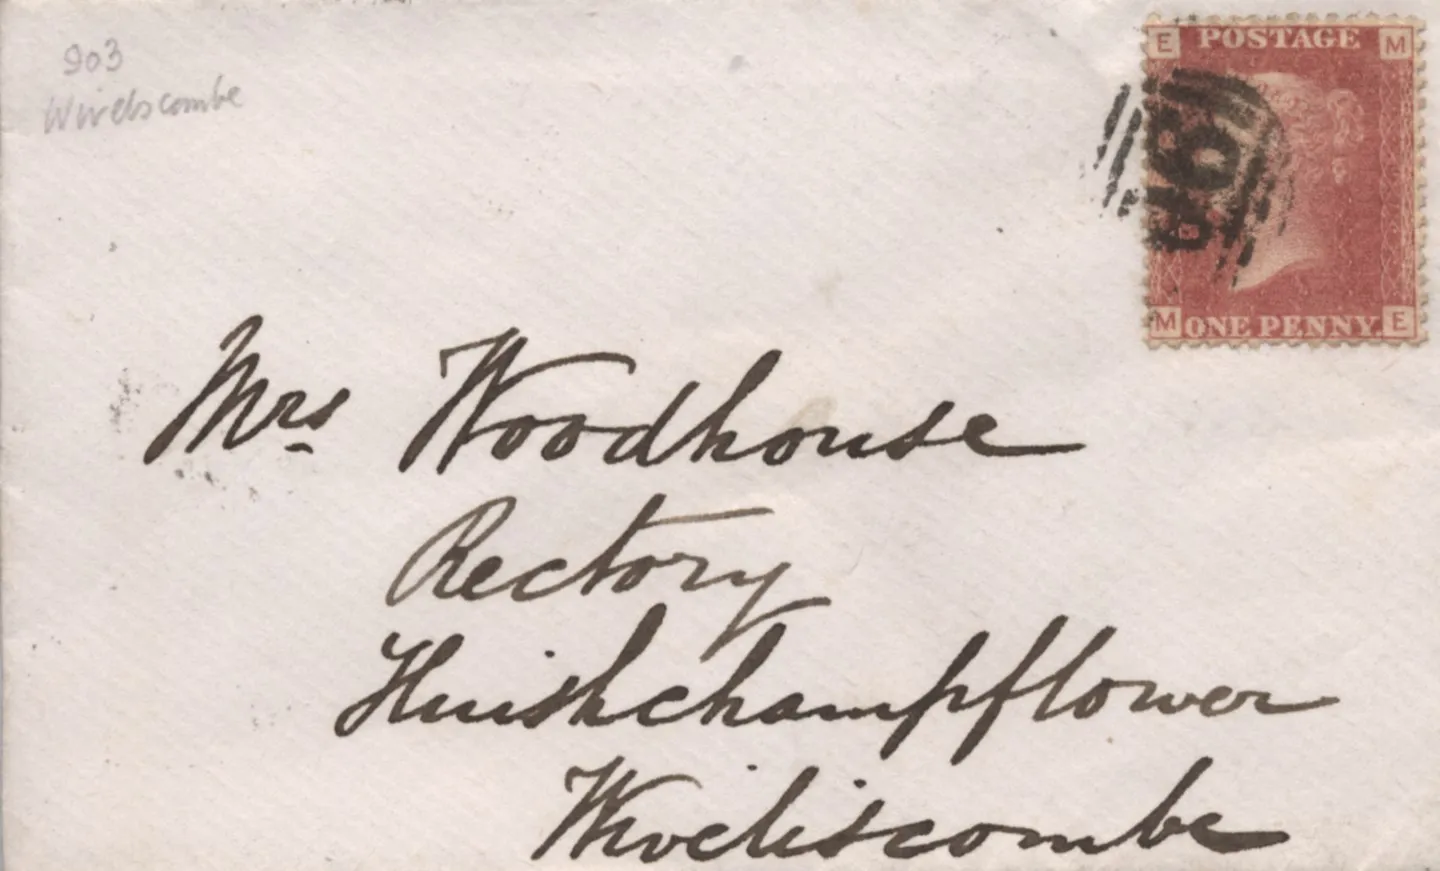 903
Wivelscombe
E POSTAGE M
M ONE PENNY. E
Mrs Woodhouse
Rectory
Huishchampflower
Wiveliscombe